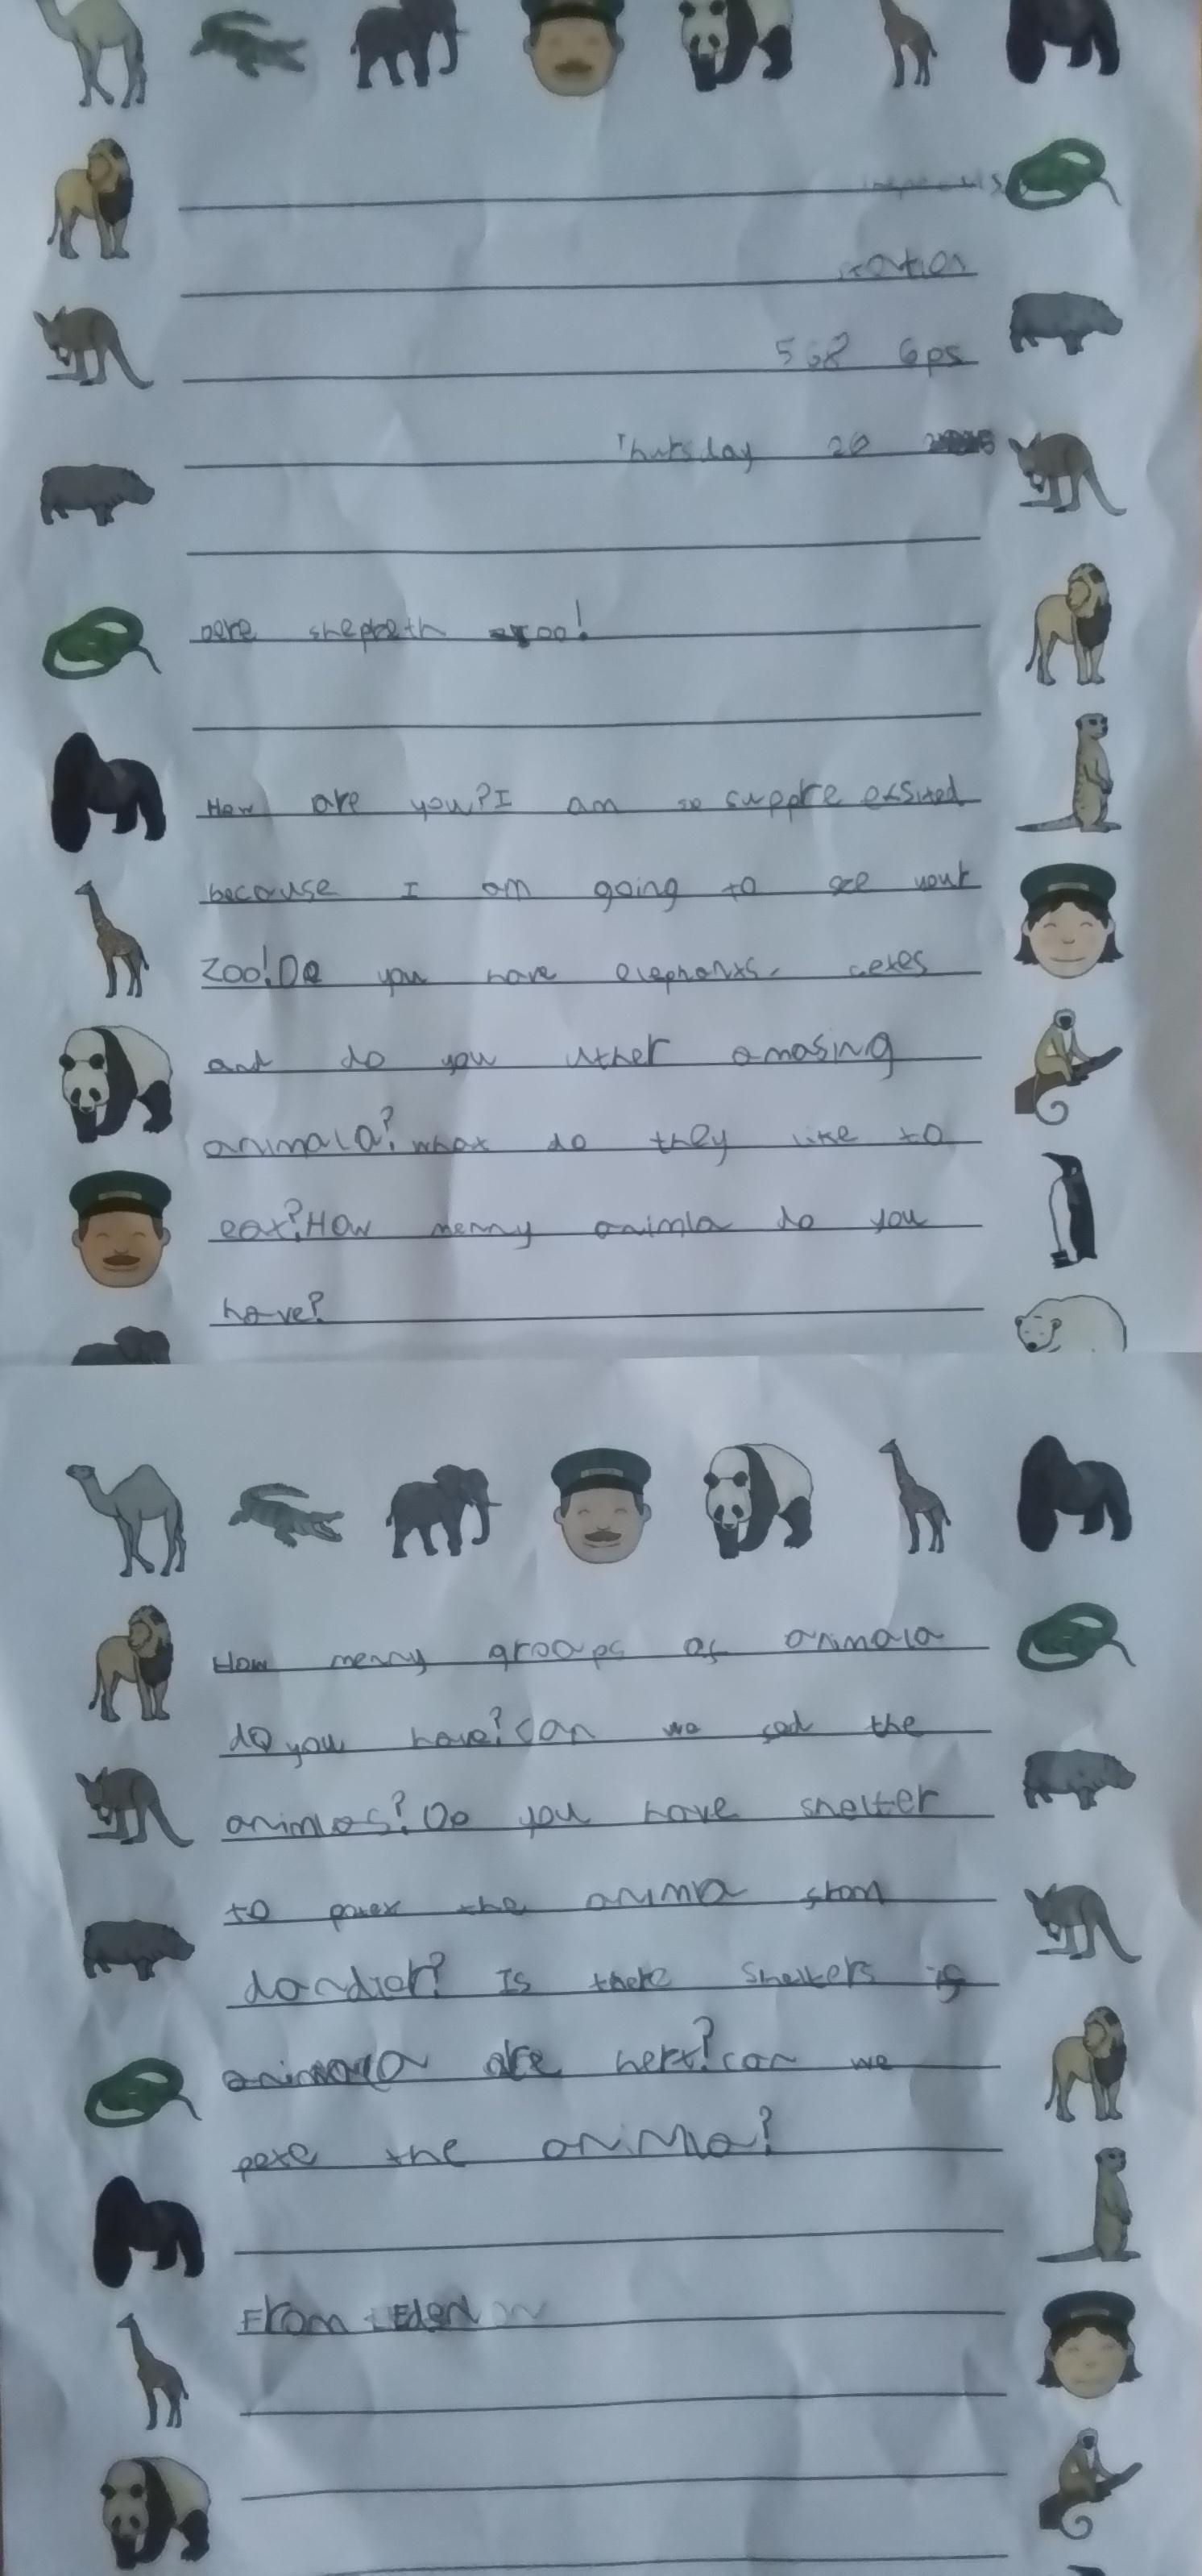 station
568 6ps
Thursday 20
Dere shepreth zoo!
How are you? I am so suppre exsited
becouse I am going to see your
Zoo! Do you have elephants,
and do you uther amasing
animala? what do they like to
eat? How menny animla do you
have?
How menny groops of animala
do you have? Can we the
animles? Do you have shelter
to the anima
Is there shelters
animala are hert? can we
pete the animla?
From Eden